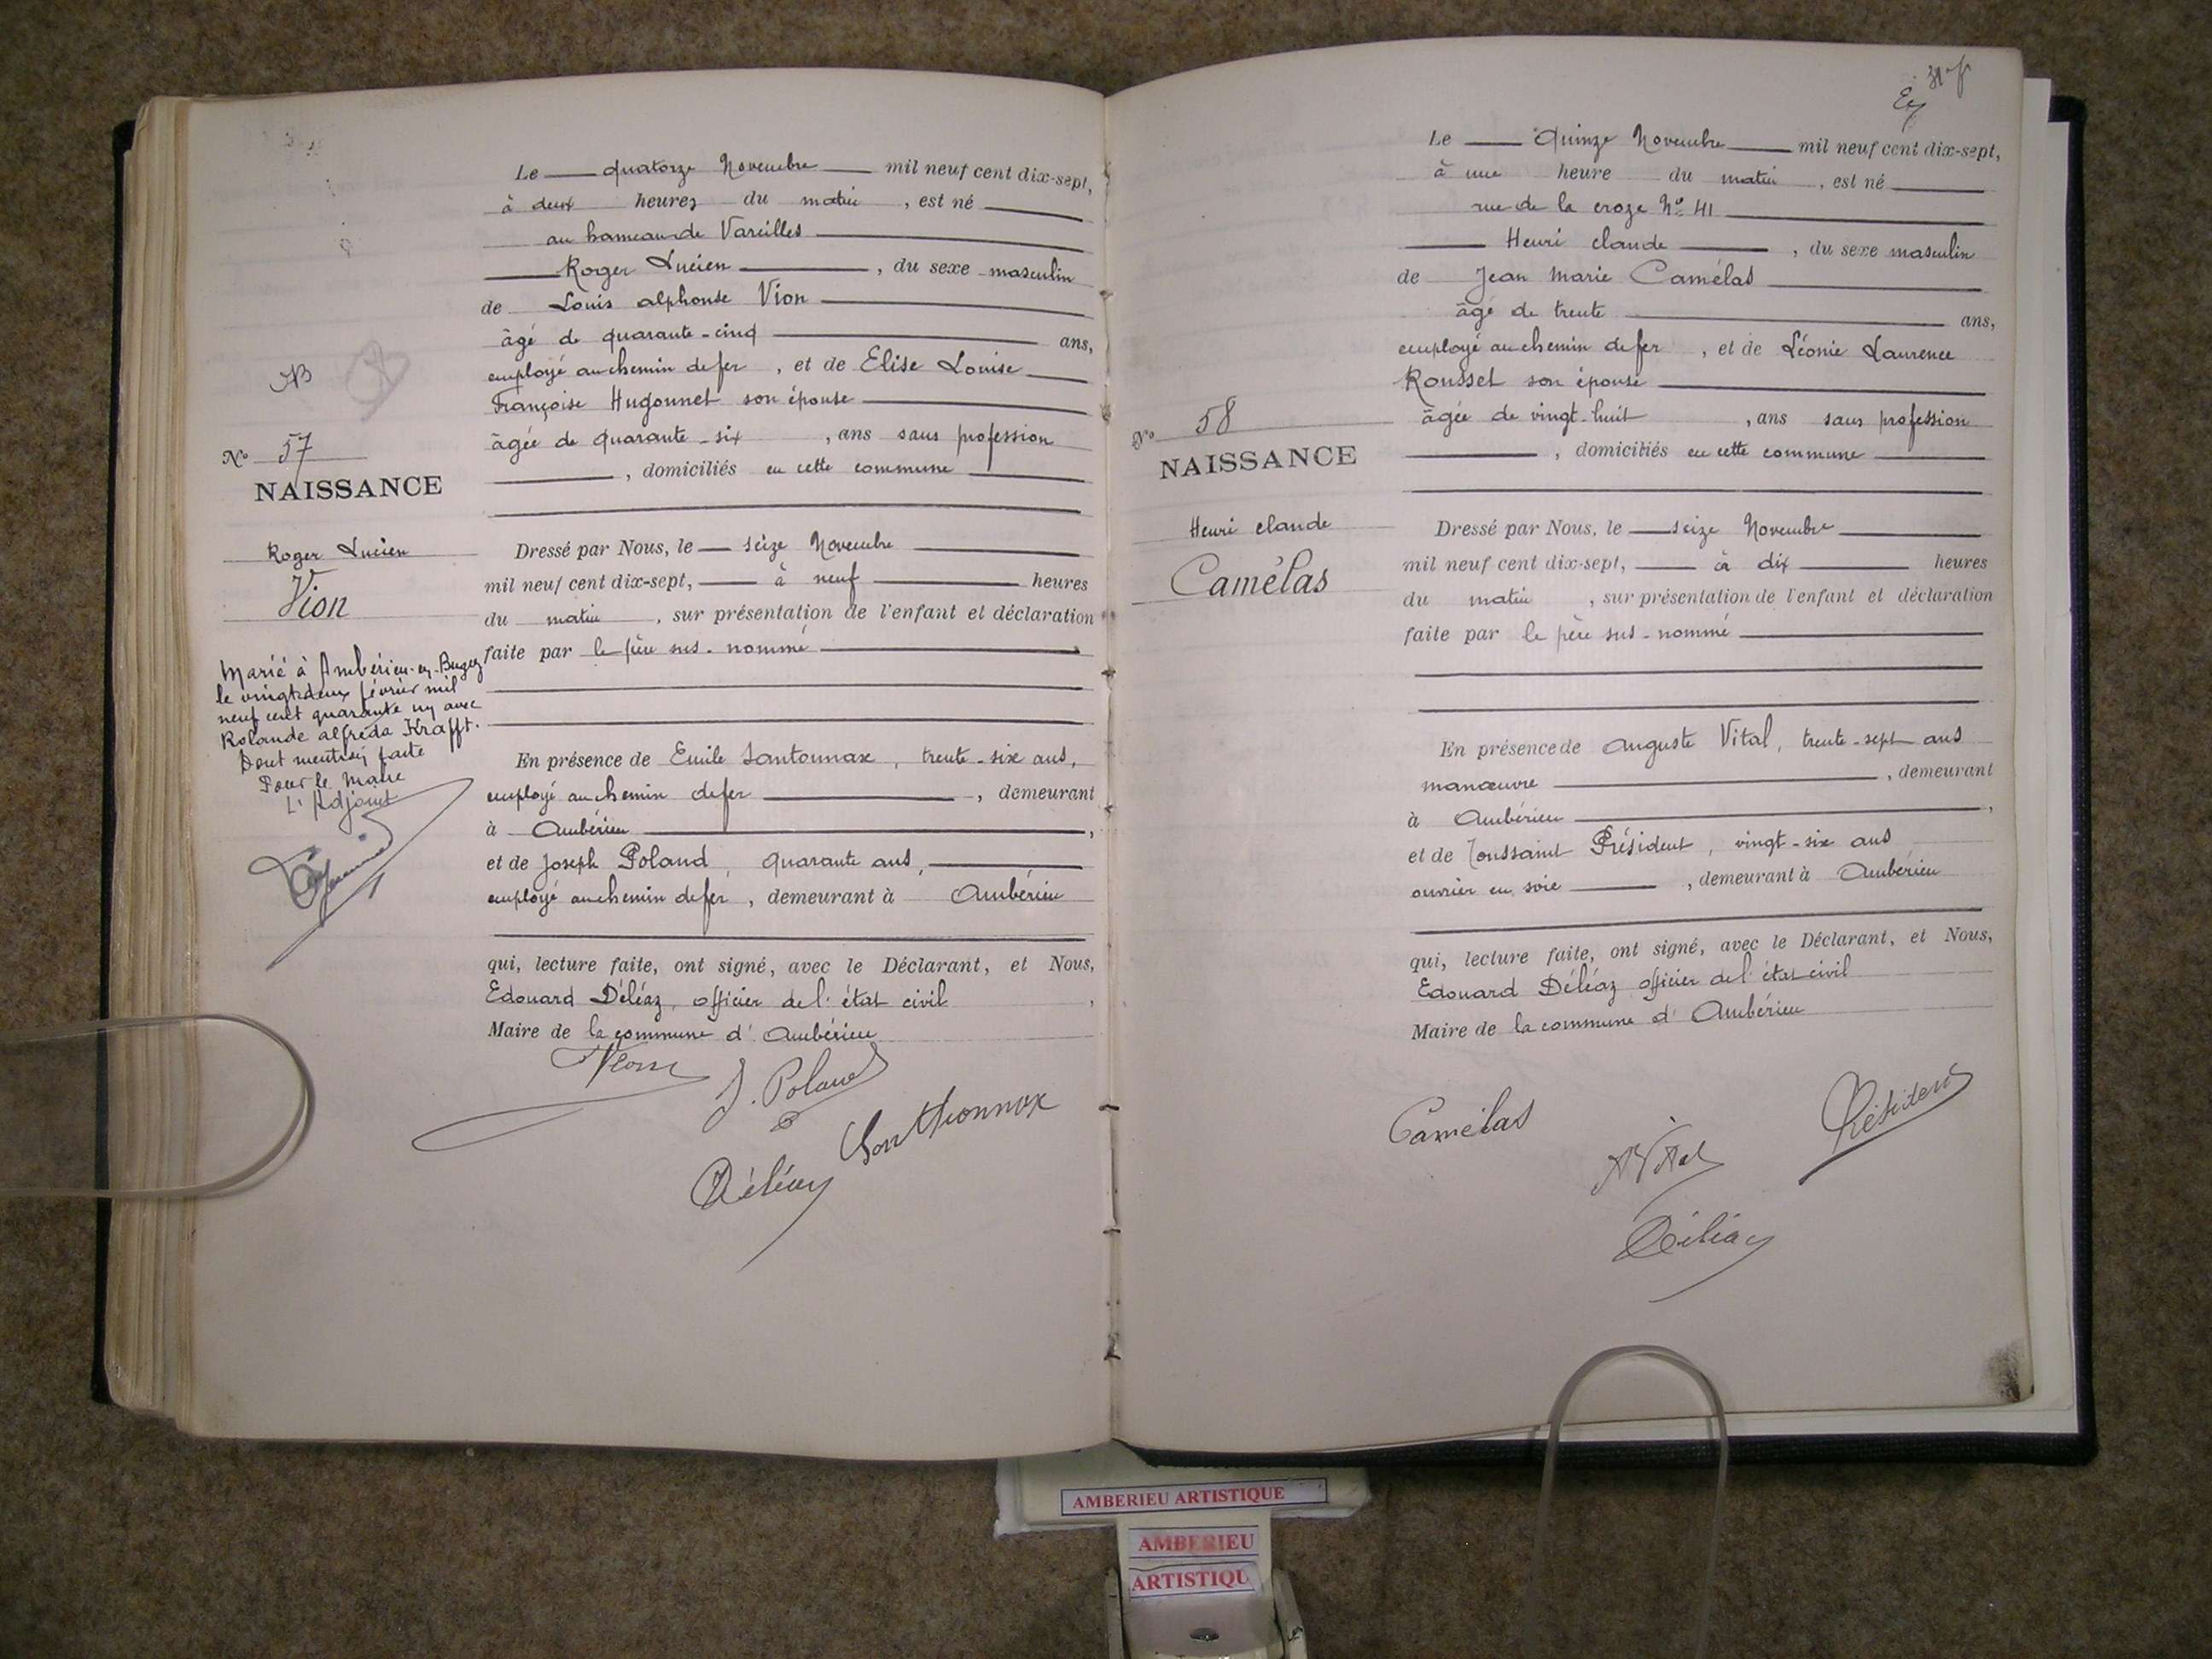 Le quatorze Novembre mil neuf cent dix-sept,
à deux heures du matin, est né
au hameau de Vareilles
Roger Lucien, du sexe masculin
de Louis alphonse Vion
âgé de quarante-cinq ans,
employé au chemin de fer, et de Elise Louise
Françoise Hugonnet son épouse
âgée de quarante-six, ans sans profession
, domiciliés en cette commune
N° 57
NAISSANCE
Roger Lucien
Vion
Marié à Ambérieu-en-Bugey
le vingt deux février mil
neuf cent quarante un avec
Rolande alfréda Krafft.
Dont mention faite
Pour le Maire
L'Adjoint
Dressé par Nous, le seize Novembre
mil neuf cent dix-sept, à neuf heures
du matin, sur présentation de l'enfant et déclaration
faite par le père sus-nommé
En présence de Emile Santonnax, trente-six ans,
employé au chemin de fer, demeurant
à Ambérieu,
et de Joseph Poland, quarante ans,
employé au chemin de fer, demeurant à Ambérieu
qui, lecture faite, ont signé, avec le Déclarant, et Nous,
Edouard Déléaz, officier de l'état civil,
Maire de la commune d'Ambérieu
Vion
J. Poland
Santhonnax
Déléaz
Le Quinze Novembre mil neuf cent dix-sept,
à une heure du matin, est né
rue de la croze N° 41
Henri claude, du sexe masculin
de Jean Marie Camélas
âgé de trente ans,
employé au chemin de fer, et de Léonie Laurence
Rousset son épouse
âgée de vingt-huit, ans sans profession
, domiciliés en cette commune
N° 58
NAISSANCE
Henri claude
Camélas
Dressé par Nous, le seize Novembre
mil neuf cent dix-sept, à dix heures
du matin, sur présentation de l'enfant et déclaration
faite par le père sus-nommé
En présence de Auguste Vital, trente-sept ans
manœuvre, demeurant
à Ambérieu,
et de Toussaint Président, vingt-six ans
ouvrier en soie, demeurant à Ambérieu
qui, lecture faite, ont signé, avec le Déclarant, et Nous,
Edouard Déléaz officier de l'état civil
Maire de la commune d'Ambérieu
Camélas
A Vital
Président
Déléaz
AMBERIEU ARTISTIQUE
AMBERIEU
ARTISTIQU